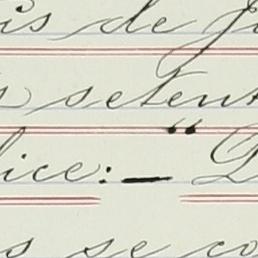 is de
s seten
lice:—"D
s se co